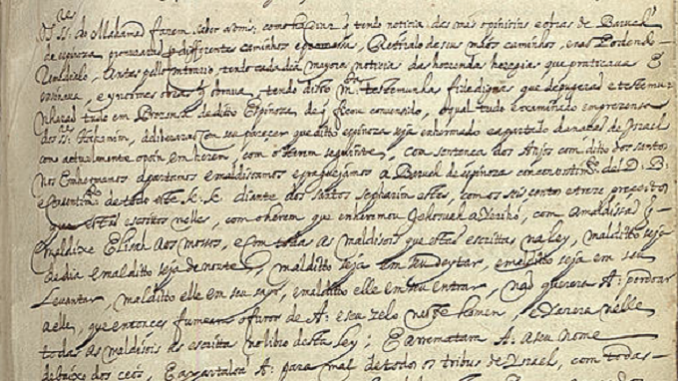 Os SS.res do Mahamad fazem saber a V ms. como há dias q tendo noticia das mas opinioins e obras de Baruch
de espinoza, procurarão p differentes caminhos e promessas, Retiralo de seus máos caminhos, e não Podendo
Remedialo, Antes pello contrario, tendo cada dia mayores noticias das horrendas heregias que practicava E
ensinava, e ynormes obras q obrava, tendo disto m.tas testemunhas fidedignas que depugerão e testemu
nharão tudo em Prezensa de ditto Espinoza, de q ficou convensido, o qual tudo examinado em prezensa
dos SS.res Hahamim, deliberarão com seu parecer que ditto espinoza seja enhermado e apartado da nação de Israel
como actualmente o poin em herem, com o Herem seguinte, Com sentença dos Anjos com ditto dos santos
nos Enhermamos apartamos e maldisoamos e praguejamos a Baruch de espinoza com consentim.to del D. B.
e consentim.to de todo este K. K. diante dos santos sepharim estes, com os seis centos e treze preceitos
que estão escrittos nelles, com o herem que enheremou Jehosuah a Yerihó, com a maldissão q
maldixe Elisah aos mossos, e com todas as maldisois que estão escrittas na ley, malditto seja
de dia e malditto seja de noute, malditto seja em seu deytar, e malditto seja em seu
Levantar, malditto elle em seu sayr, e malditto elle em seu entrar, não quererá A: perdoar
a elle, que entonces fumeará o furor de A: e seu zelo neste homem, e Yazerá nelle
todas as maldisois as escrittas no libro desta ley; E arrematará A: a seu nome
debaixo dos ceos, E apartaloa A: para mal de todos os tribus de Ysrael, com todas-